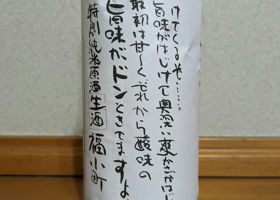 けてくるぞ……
旨味がはじけて奥深い
最初は甘〜くそれから酸味の
旨味がドンときてますよ
特別純米原酒 生酒 福小町